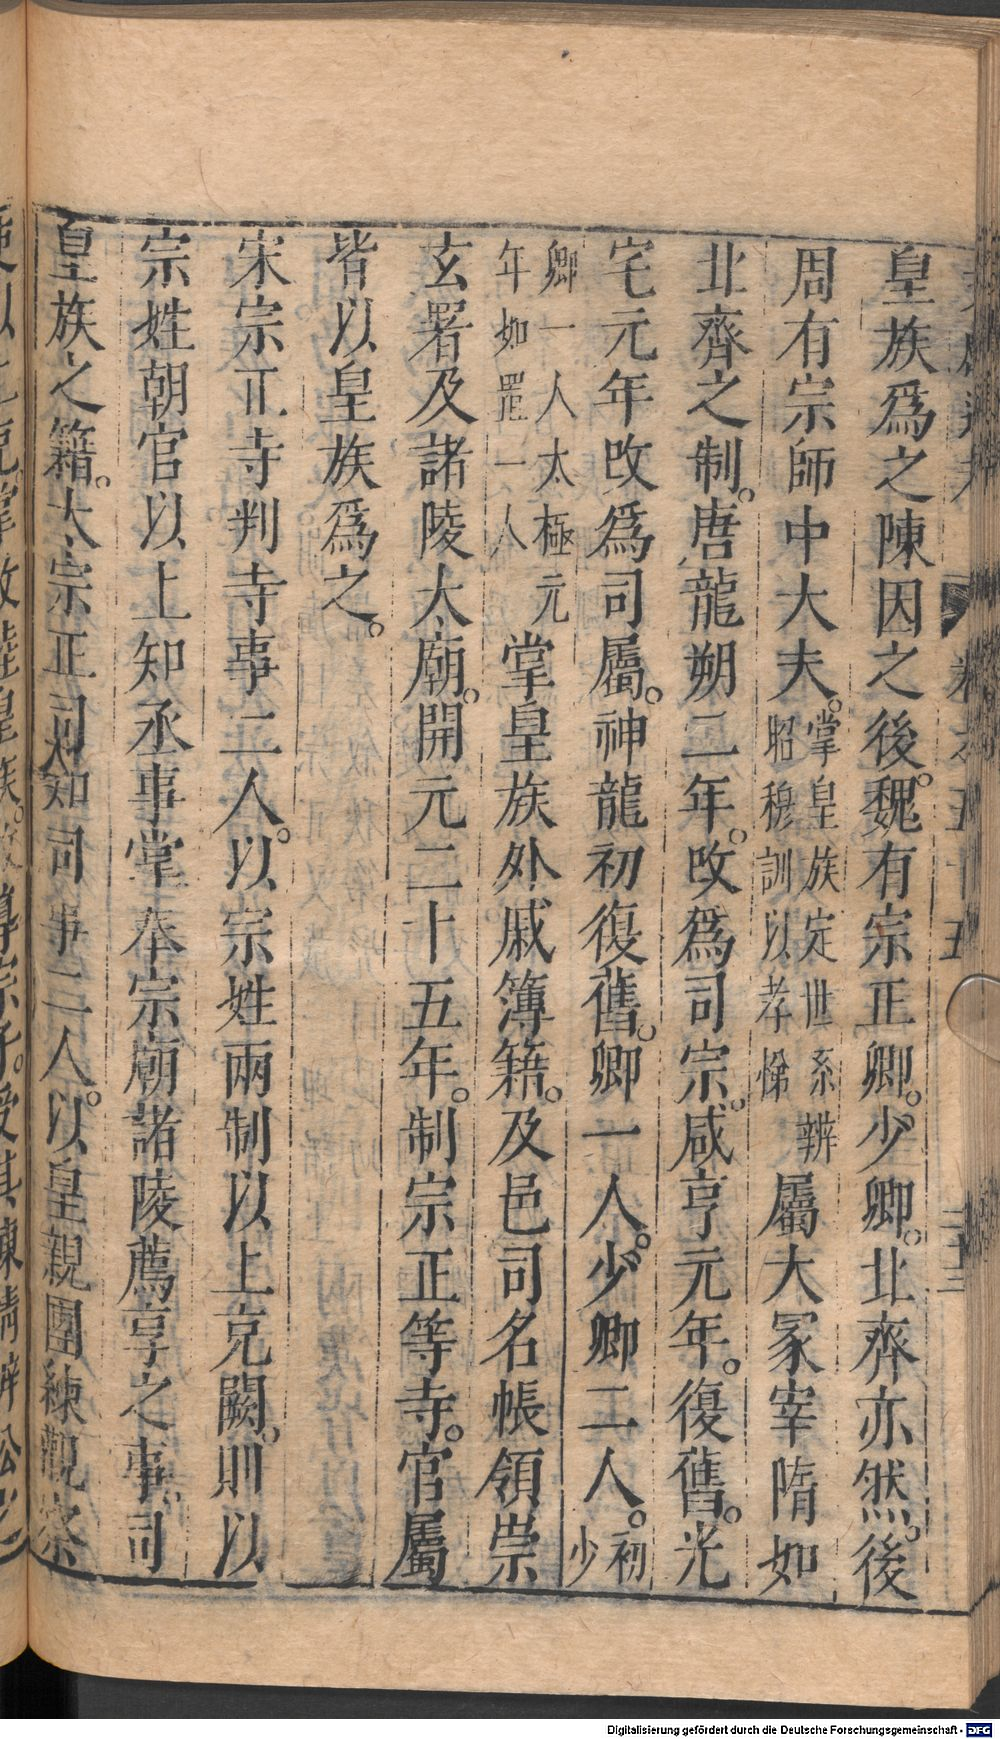 皇族爲之陳因之後。魏有宗正卿。少卿。北齊亦然。後
周有宗師中大夫。掌皇族定世系辨昭穆訓以孝悌屬大冢宰隋如
北齊之制。唐龍朔二年。攺爲司宗。咸亨元年。復舊。光
宅元年攺爲司屬。神龍初復舊。卿一人。少卿二人。初少
卿一人太極元年始置一人掌皇族外戚簿籍。及邑司名帳領崇
玄署及諸陵太廟。開元二十五年。制宗正等寺。官屬
皆以皇族爲之。
宋宗正寺判寺事二人。以宗姓兩制以上充闕。則以
宗姓朝官以上知丞事掌奉宗廟諸陵薦享之事。司
皇族之籍。大宗正司知司事二人。以皇親團練觀察
Digitalisierung gefördert durch die Deutsche Forschungsgemeinschaft - DFG